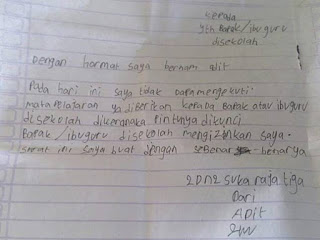 kepala
yth Bapak/ibu guru
disekolah
Dengan hormat saya bernama adit
Pada hari ini saya tidak dapa mengekuti
mata Plajaran ya diberikan kepada Bapak atau ibu guru
disekolah dikerenaka Pintnya dikunci
Bapak/ibu guru disekolah mengizinkan saya.
surat ini saya buat dengan sebenar-benarya
SDN2 suka raja tiga
Dari
ADit